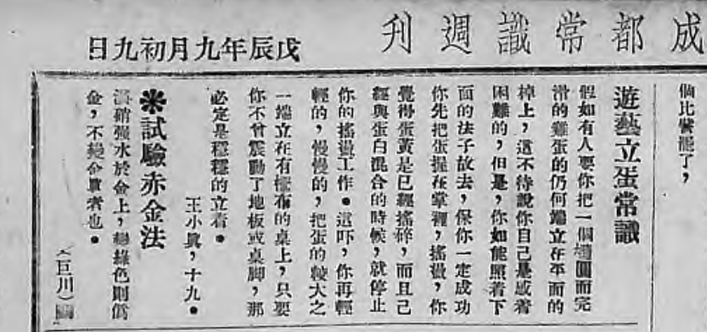 成都常識週刊
戊辰年九月初九日
個比譬罷了，
遊藝立蛋常識
假如有人要你把一個橢圓而完
滑的雞蛋的任何端立在平面的
棹上，這不待說你自己是感着
困難的，但是，你如能照着下
面的法子故去，保你一定成功
你先把蛋握在掌裡，搖盪，你
覺得蛋黃是已經搖碎，而且己
經與蛋白混合的時候，就停止
你的搖盪工作。這吓，你再輕
輕的，慢慢的，把蛋的較大之
一端立在有檯布的桌上，只要
你不曾震動了地板或桌脚，那
必定是穩穩的立着。
王小真，十九。
※試驗赤金法
滴硝強水於金上，變綠色則僞
金，不變仝眞者也。
（巨川）